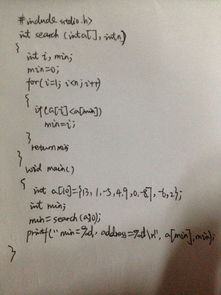 #include stdio.h>
int search (int a[], int n)
{
int i, min;
min=0;
for(i=1; i<n; i++)
{
if(a[i]<a[min])
min=i;
}
return min
}
void main()
{
int a[10]={13, 1, -3, 4, 9, 0, -8, -6, 2};
int min;
min = search(a,10);
printf("min=%d, address=%d\n", a[min], min);
}